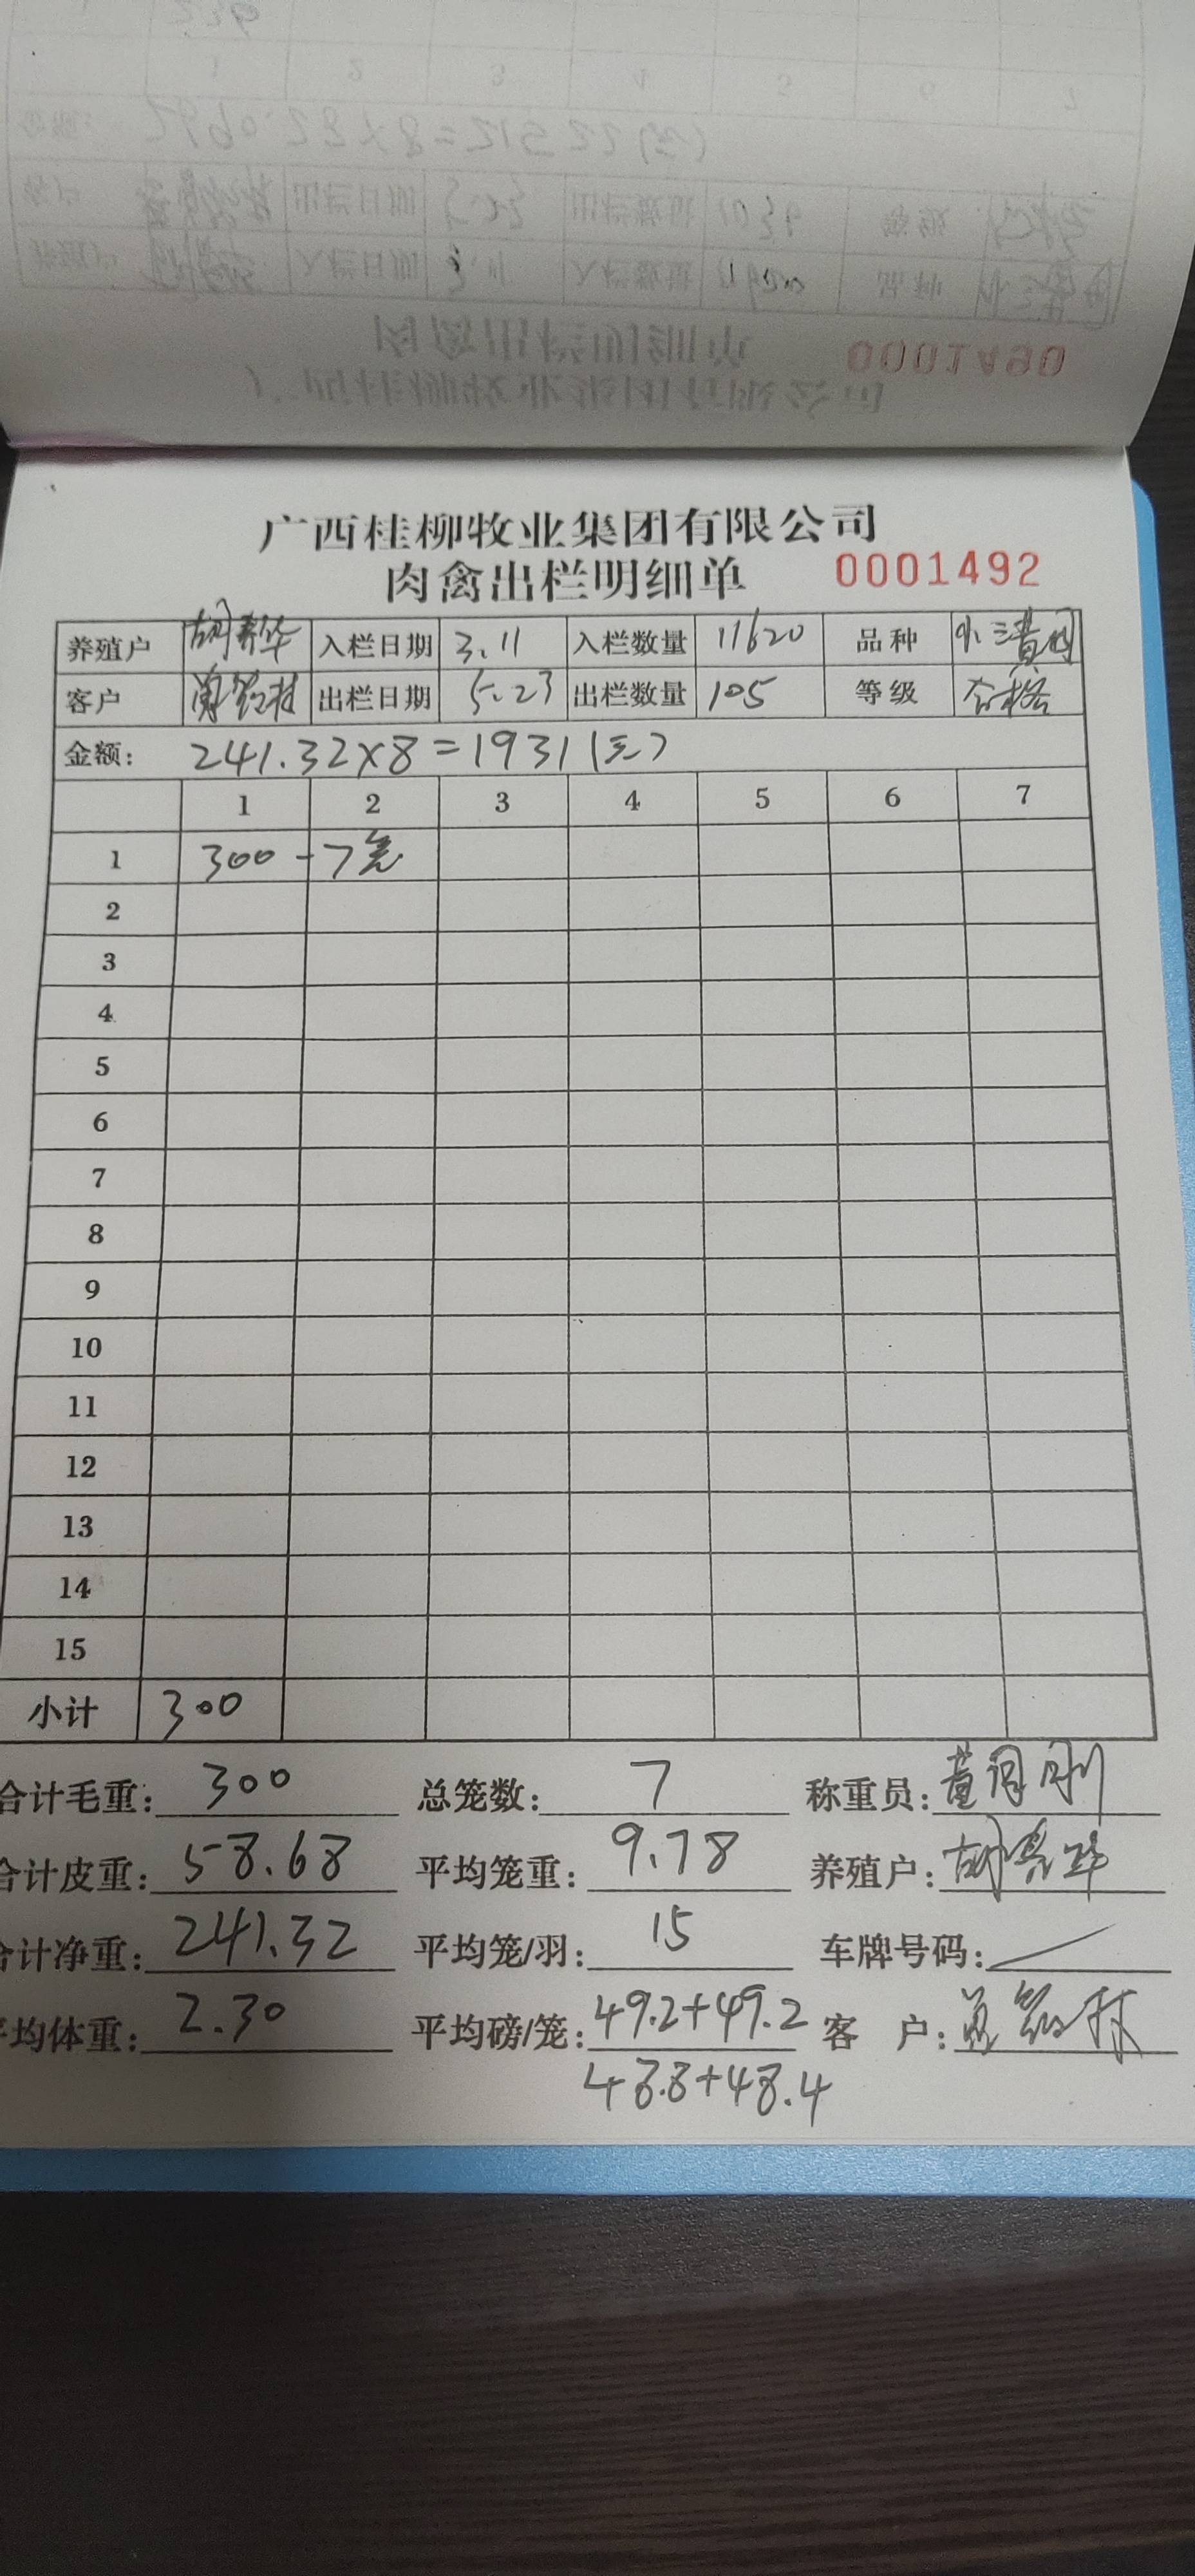 0001490
广西桂柳牧业集团有限公司
肉禽出栏明细单 0001492
养殖户 胡亮华 入栏日期 3.11 入栏数量 11620 品种 小三黄
客户 出栏日期 5.23 出栏数量 105 等级 合格
金额: 241.32×8=1931(元)
1 2 3 4 5 6 7
1 300-7笼
2
3
4
5
6
7
8
9
10
11
12
13
14
15
小计 300
合计毛重: 300 总笼数: 7 称重员: 黄
合计皮重: 58.68 平均笼重: 9.78 养殖户: 胡亮华
合计净重: 241.32 平均笼/羽: 15 车牌号码:
平均体重: 2.30 平均磅/笼: 49.2+49.2 客 户:
48.8+48.4